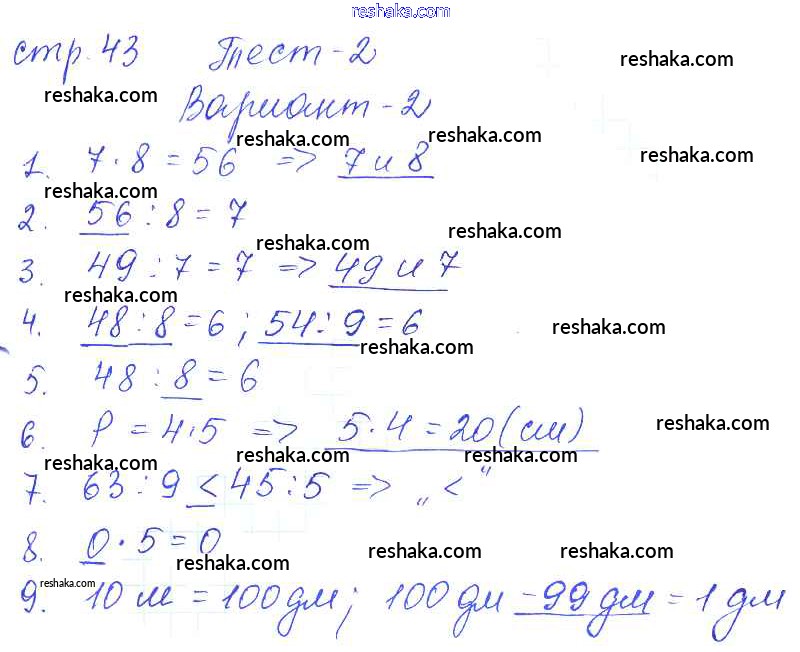 reshaka.com
стр. 43 Тест-2
reshaka.com
reshaka.com
Вариант-2
reshaka.com
reshaka.com
reshaka.com
1. 7 · 8 = 56 => 7 и 8
reshaka.com
2. 56 : 8 = 7
reshaka.com
3. 49 : 7 = 7 => 49 и 7
reshaka.com
4. 48 : 8 = 6 ; 54 : 9 = 6
reshaka.com
reshaka.com
5. 48 : 8 = 6
6. P = 4 · 5 => 5 · 4 = 20 (см)
reshaka.com
reshaka.com
reshaka.com
reshaka.com
7. 63 : 9 < 45 : 5 => „ < “
8. 0 · 5 = 0
reshaka.com
reshaka.com
reshaka.com
reshaka.com
9. 10 м = 100 дм ; 100 дм - 99 дм = 1 дм